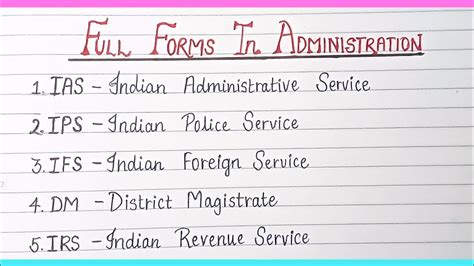 Full Forms In Administration
1. IAS - Indian Administrative Service
2. IPS - Indian Police Service
3. IFS - Indian Foreign Service
4. DM - District Magistrate
5. IRS - Indian Revenue Service